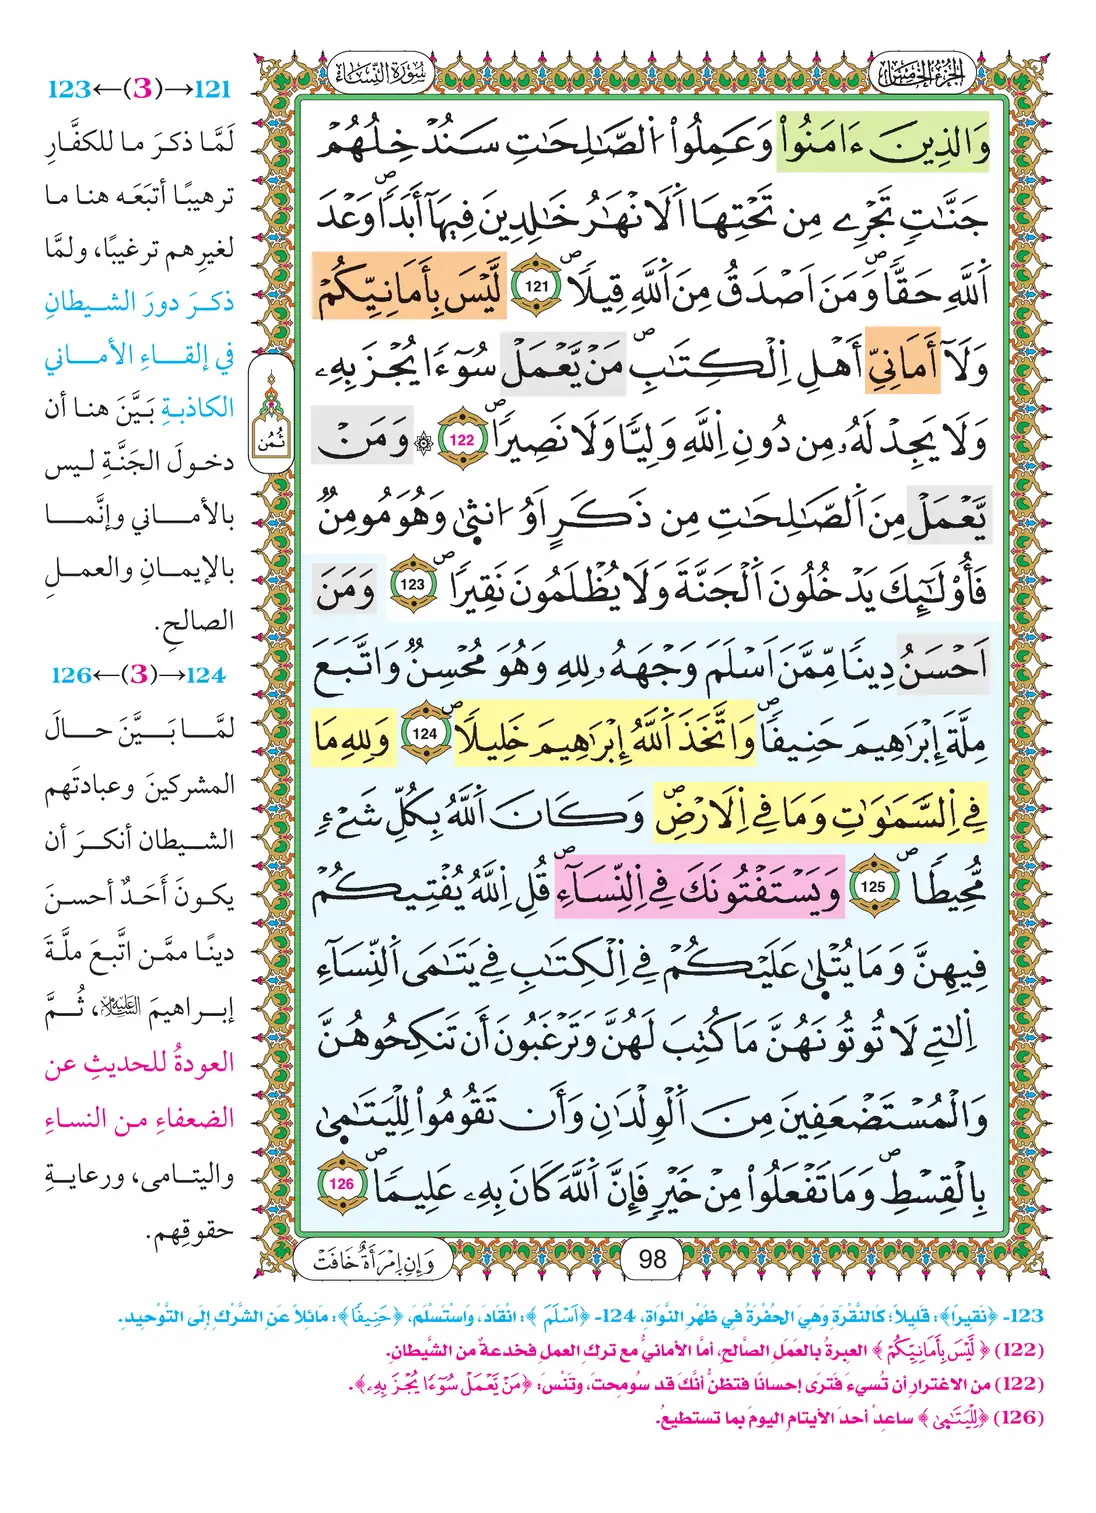 الجزء الخامس
سورة النساء
وَالذِينَ ءَامَنُواْ وَعَمِلُواْ اُلصَّٰلِحَٰتِ سَنُدْخِلُهُمْ
جَنَّٰتٖ تَجْرِے مِن تَحْتِهَا اَلَانْهَٰرُ خَٰلِدِينَ فِيهَآ أَبَداٗۖ وَعْدَ
اَللَّهِ حَقّاٗۖ وَمَنَ اَصْدَقُ مِنَ اَللَّهِ قِيلاٗۖ 121 لَّيْسَ بِأَمَانِيِّكُمْ
وَلَآ أَمَانِيِّ أَهْلِ اِلْكِتَٰبِۖ مَنْ يَّعْمَلْ سُوٓءاٗ يُجْزَ بِهِۦ
وَلَا يَجِدْ لَهُۥ مِن دُونِ اِللَّهِ وَلِيّاٗ وَلَا نَصِيراٗۖ 122 ۞ وَمَنْ
يَّعْمَلْ مِنَ اَلصَّٰلِحَٰتِ مِن ذَكَرٍ اَوُ ا۟نث۪يٰ وَهُوَ مُومِنٞ
فَأُوْلَٰٓئِكَ يَدْخُلُونَ اَلْجَنَّةَ وَلَا يُظْلَمُونَ نَقِيراٗۖ 123 وَمَنَ
اَحْسَنُ دِيناٗ مِّمَّنَ اَسْلَمَ وَجْهَهُۥ لِلهِ وَهُوَ مُحْسِنٞ وَاتَّبَعَ
مِلَّةَ إِبْرَٰهِيمَ حَنِيفاٗۖ وَاتَّخَذَ اَللَّهُ إِبْرَٰهِيمَ خَلِيلاٗۖ 124 وَلِلهِ مَا
فِے اِلسَّمَٰوَٰتِ وَمَا فِے اِلَارْضِۖ وَكَانَ اَللَّهُ بِكُلِّ شَےْءٖ
مُّحِيطاٗۖ 125 وَيَسْتَفْتُونَكَ فِے اِلنِّسَآءِۖ قُلِ اِللَّهُ يُفْتِيكُمْ
فِيهِنَّ وَمَا يُتْل۪يٰ عَلَيْكُمْ فِے اِلْكِتَٰبِ فِے يَتَٰمَى اَلنِّسَآءِ
اِلٰتِے لَا تُوتُونَهُنَّ مَا كُتِبَ لَهُنَّ وَتَرْغَبُونَ أَن تَنكِحُوهُنَّ
وَالْمُسْتَضْعَفِينَ مِنَ اَلْوِلْدَٰنِ وَأَن تَقُومُواْ لِلْيَتَٰم۪يٰ
بِالْقِسْطِۖ وَمَا تَفْعَلُواْ مِنْ خَيْرٖ فَإِنَّ اَللَّهَ كَانَ بِهِۦ عَلِيماٗۖ 126
ثُمُن
98
وَإِنِ اِمْرَأَةٌ خَافَتْ
121→(3)←123
لَمَّا ذكرَ ما للكفَّارِ
ترهيبًا أتبَعَه هنا ما
لغيرِهم ترغيبًا، ولمَّا
ذكرَ دورَ الشيطانِ
في إلقاءِ الأماني
الكاذبةِ بَيَّنَ هنا أن
دخولَ الجَنَّةِ ليس
بالأماني وإنَّما
بالإيمانِ والعملِ
الصالحِ.
124→(3)←126
لمَّا بَيَّنَ حالَ
المشركينَ وعبادتَهم
الشيطان أنكرَ أن
يكونَ أَحَدٌ أحسنَ
دينًا ممَّن اتَّبعَ ملَّةَ
إبراهيمَ عليه السلام، ثُمَّ
العودةُ للحديثِ عن
الضعفاءِ من النساءِ
واليتامى، ورعايةِ
حقوقِهم.
123- ﴿نَقِيرًا﴾: قَلِيلاً؛ كَالنُّقْرَةِ وَهِيَ الحُفْرَةُ فِي ظَهْرِ النَّوَاةِ، 124- ﴿اَسْلَمَ﴾: انْقَادَ، وَاسْتَسْلَمَ، ﴿حَنِيفًا﴾: مَائِلاً عَنِ الشِّرْكِ إِلَى التَّوْحِيدِ.
(122) ﴿لَّيْسَ بِأَمَانِيِّكُمْ﴾ العبرةُ بالعَمَلِ الصَّالحِ، أمَّا الأمانيُّ مع تركِ العملِ فخدعةٌ من الشَّيطانِ.
(122) من الاغترارِ أن تُسيءَ فَتَرَى إحسانًا فتظنُّ أنَّكَ قد سُومِحتَ، وتَنْسَ: ﴿مَنْ يَّعْمَلْ سُوٓءاٗ يُجْزَ بِهِۦ﴾.
(126) ﴿لِلْيَتَٰم۪يٰ﴾ ساعِدْ أحدَ الأيتامِ اليومَ بما تستطيعُ.